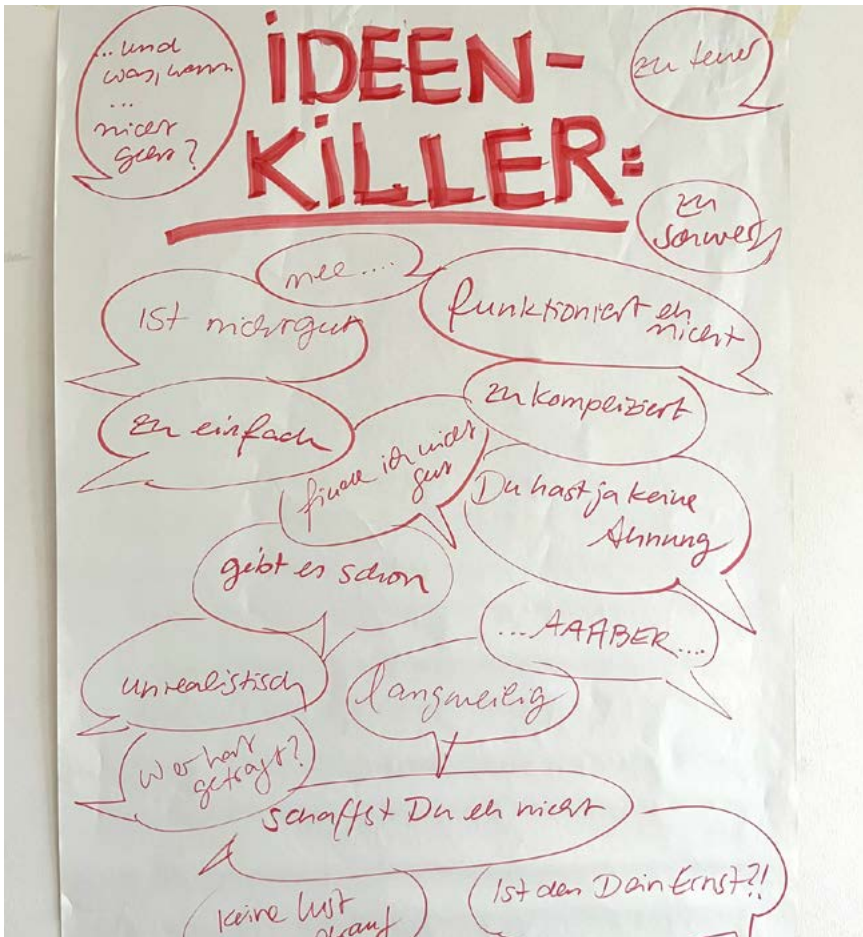 ...und
was, wenn
...
nicht
geht?
IDEEN-
KILLER:
zu teuer
zu
schwer
nee....
Ist nicht gut
funktioniert eh
nicht
zu einfach
zu kompliziert
finde ich nicht
gut
Du hast ja keine
Ahnung
gibt es schon
...AAABER...
unrealistisch
langweilig
Wer hat
gefragt?
schaffst Du eh nicht
Ist den Dein Ernst?!
keine Lust